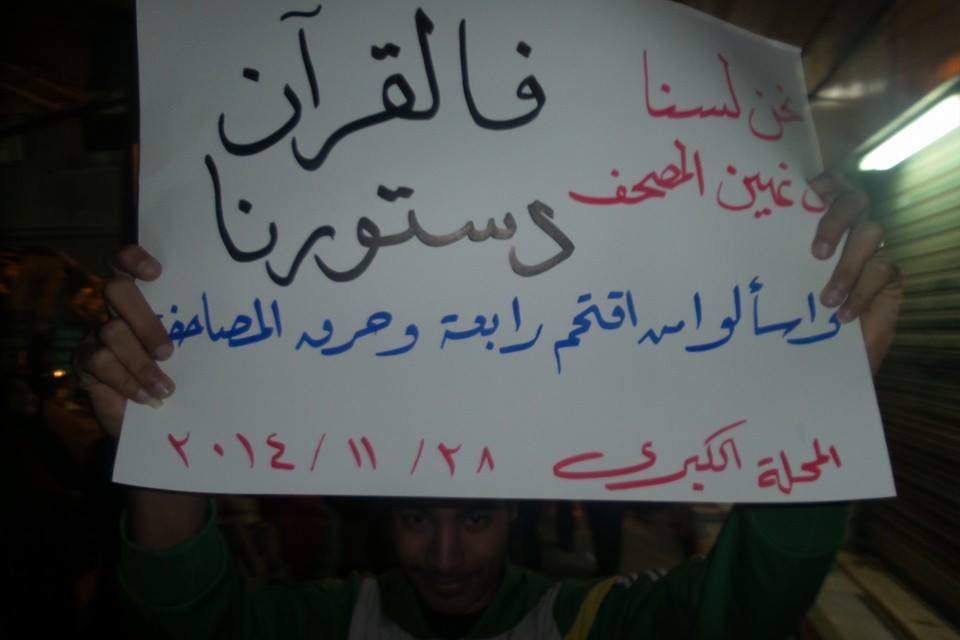 نحن لسنا
المصحف
فالقرآن
دستورنا
واسألوا من اقتحم رابعة وحرق المصاحف
المحلة الكبرى ٢٨ / ١١ / ٢٠١٤